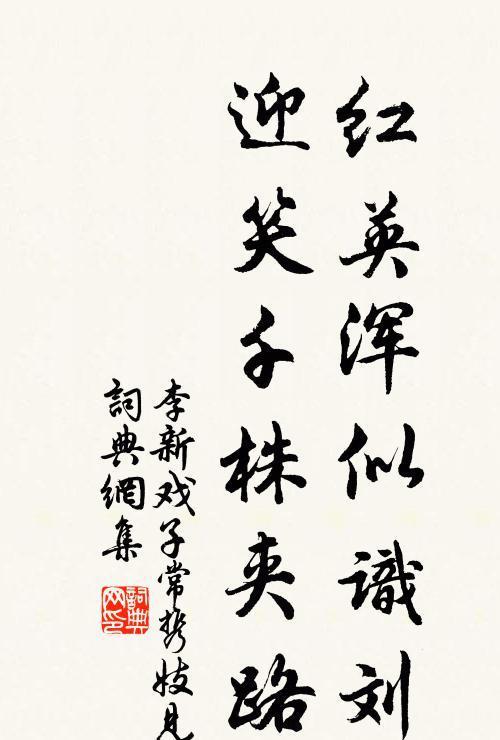 红英浑似識刘
迎笑千株夹路
李新戏子常携妓見
詞典網集
詞典
网印